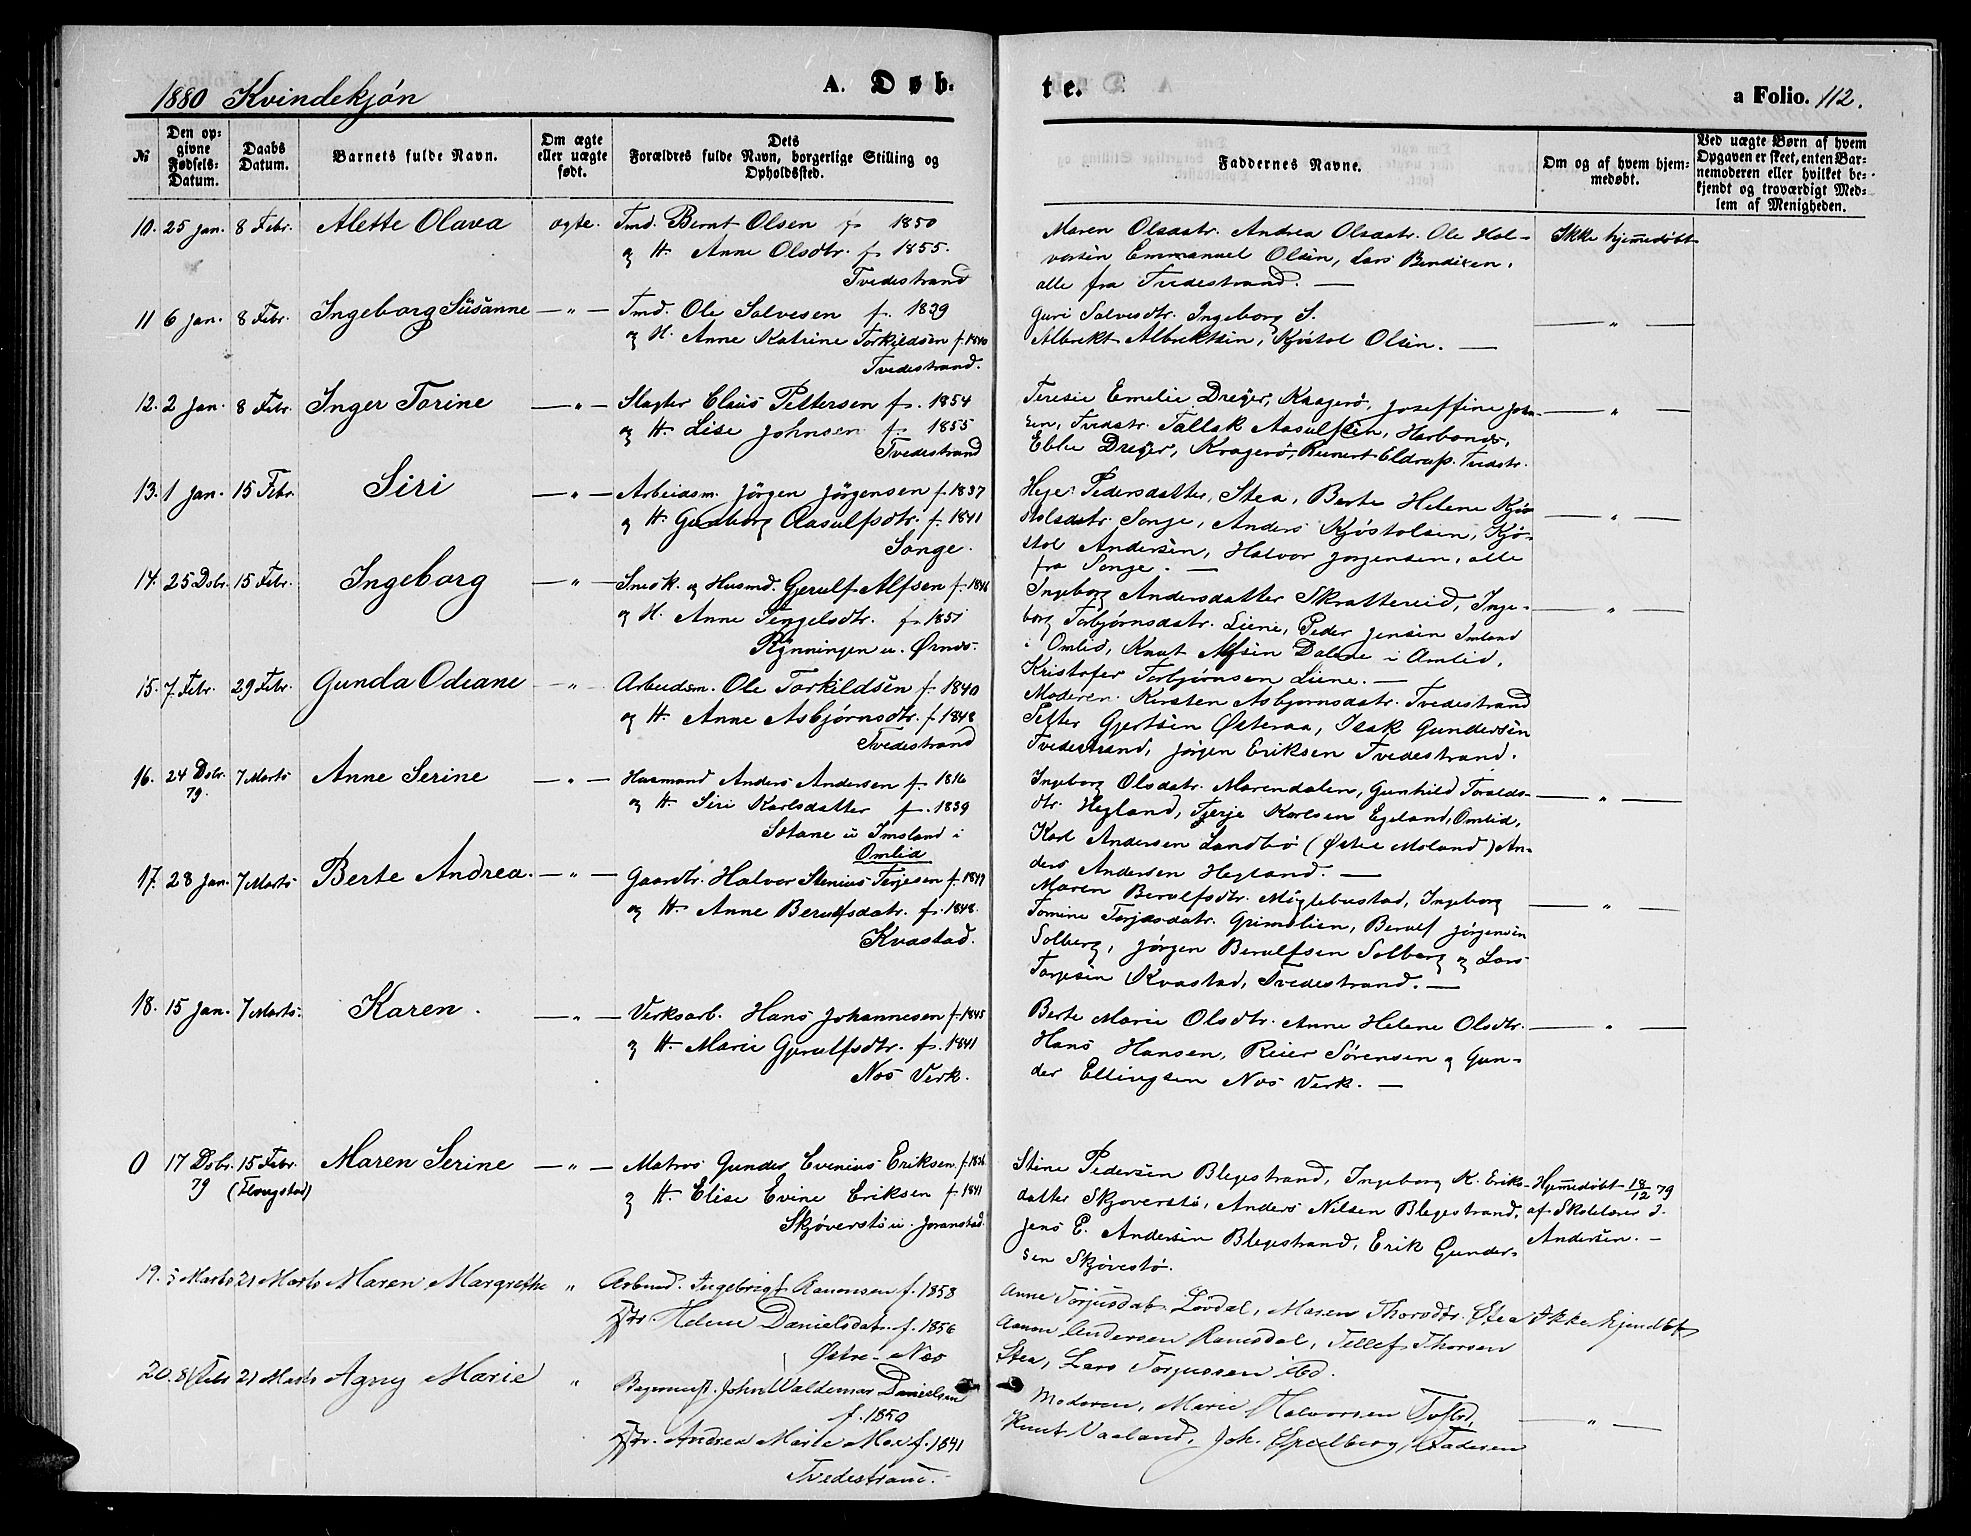 1880 Kvindekjøn
A. Døb-
te.
a Folio. 112.
№
Den op-
givne
Fødsels-
Datum.
Daabs
Datum.
Barnets fulde Navn.
Om ægte
eller uægte
født.
Dets
Forældres fulde Navn, borgerlige Stilling og
Opholdssted.
Faddernes Navne.
Om og af hvem hjem-
medøbt.
Ved uægte Børn af hvem
Opgaven er skeet, enten Bar-
nemoderen eller hvilket be-
kjendt og troværdigt Med-
lem af Menigheden.
10. 25 Jan. 8 Febr. Alette Olava ægte. Tmd. Bernt Olsen f. 1850
og H. Anne Olsdtr. f. 1855.
Tvedestrand
Maren Olsdatr. Andrea Olsdatr. Ole Hal-
vorsen Emmanuel Olsen, Lars Bendixen,
alle fra Tvedestrand. —
Ikke hjemmedøbt
11 6 Jan. 8 Febr. Ingeborg Susanne — " — Tmd. Ole Salvesen f. 1839
og H. Anne Katrine Torkildsen f. 1840
Tvedestrand.
Guri Salvesdtr. Ingeborg S.
Albrekt Albrektsen, Kjøstol Olsen. —
— " —
12. 2 Jan. 8 Febr. Inger Torine — " — Slagter Claus Pettersen f. 1854
og H. Lise Johnsen f. 1855
Tvedestrand
Teresie Emelie Dreyer, Kragerø, Joseffine John-
sen, Tvedstr. Tallak Aasulfsen,
Eblie Dreyer, Kragerø, Reinert Eldrup. Tvedstr.
— " —
13. 1 Jan. 15 Febr. Siri — " — Arbeidsm. Jörgen Jörgensen f. 1837
og H. Gunborg Aasulfsdtr. f. 1841
Songe.
Hege Pedersdatter, Stea, Berte Helene Kjø-
stolsdatr. Songe, Anders Kjöstolsen, Kjø-
stol Andersen, Halvor Jörgensen, alle
fra Songe. —
— " —
14. 25 Dsbr. 15 Febr. Ingeborg — " — Smedk. og Husmd. Gjerulf Alfsen f. 1846
og H. Anne Tengelsdtr. f. 1851
Rynningen u.
Ingeborg Andersdatter Skrattereid, Inge-
borg Torbjørnsdatr. Liene, Peder Jensen Imland
i Omlid, Knut Alfsen Dalene i Omlid,
Kristofer Torbjørnsen Liene. —
— " —
15. 7 Febr. 29 Febr. Gunda Odiane — " — Arbeidsm. Ole Torkildsen f. 1840
og H. Anne Asbjørnsdtr. f. 1848
Tvedestrand
Moderen. Kirsten Asbjørnsdatr. Tvedestrand
Petter Gjertsen Østeraa, Isak Gundersen
Tvedestrand, Jørgen Eriksen Tvedestrand.
16. 24 Dsbr. 7 Marts Anne Serine — " — Husmand Anders Andersen f. 1816
79.
og H. Siri Karlsdatter f. 1839
Sotane u Imsland i
Omlid
Ingeborg Olsdatr. Marendalen, Gunhild Toralds-
dtr. Hegland, Terje Karlsen Egeland, Omlid,
Karl Andersen Landbö (Østre Moland) An-
ders Andersen Hegland. —
— " —
17. 28 Jan. 7 Marts Berte Andrea. — " — Gaardbr. Halvor Stenius Terjesen f. 1847
og H. Anne Berulfsdatr. f. 1848.
Kvastad.
Maren Berulfsdtr. Myglebustad, Ingeborg
Tomine Torjusdatr. Grimelien, Berulf Jørgensen
Solberg, Jørgen Berulfsen Solberg og Lars
Torjesen Kvastad, Tvedestrand. —
— " —
18. 15 Jan. 7 Marts. Karen. — " — Verksarb. Hans Johannesen f. 1845
og H. Marie Gjerulfsdtr. f. 1841
Næs Verk.
Berte Marie Olsdtr. Anne Helene Olsdtr.
Hans Hansen, Reier Sörensen og Gun-
der Ellingsen Næs Verk. —
— " —
0 17 Dsbr. 15 Febr. Maren Serine — " — Matros Gunder Evenius Eriksen f. 1836
79 (Flangstad)
og H. Elise Evine Eriksen f. 1841
Skjöverstö u. Joranstad.
Stine Pedersen Blegestrand, Ingeborg K. Eriks-
datter Skjoverstö, Anders Nilsen Blegestrand,
Jens E. Andersen Blegestrand, Erik Gunder-
sen Skjøvestø.
Hjemmedøbt 18/12 79
af Skolelærer J.
Andersen. —
19. 5 Marts 21 Marts Maren Margrethe " Arbmd. Ingebrigt Aanonsen f. 1853
Hstr. Helene Danielsdat. f. 1856
Østre Næs
Anne Torjusdat. Lövdal, Maren Thorsdtr. Stea
Aanon Andersen Ramsdal, Tellef Thorsen
Stea, Lars Torjussen ibd.
Ikke hjemdøbt
20. 8 Febr 21 Marts Agny Marie " Bagermest. John Waldemar Danielsen
f. 1850
Hstr. Andrea Marie Moe f. 1841
Tvedestrand.
Moderen, Marie Halvorsen
Knut Vaaland, Joh. Spedberg, Faderen
— " —